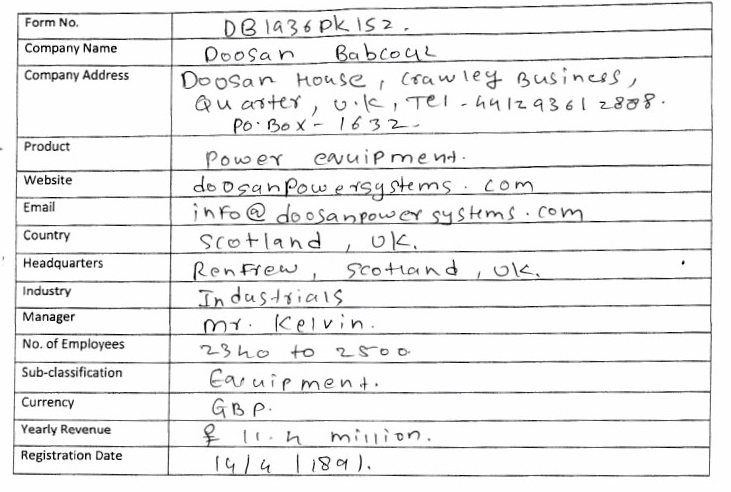 Form No. DB1936PK152.
Company Name Doosan Babcock
Company Address Doosan House, Crawley Business,
Quarter, U.K, Tel - 441293612888.
PO. Box - 1632-
Product Power equipment.
Website doosanpowersystems.com
Email info@doosanpowersystems.com
Country Scotland, UK.
Headquarters Renfrew, Scotland, UK.
Industry Industrials
Manager Mr. Kelvin.
No. of Employees 2340 to 2500
Sub-classification Equipment.
Currency GBP.
Yearly Revenue £ 11.4 million.
Registration Date 14/4/1891.